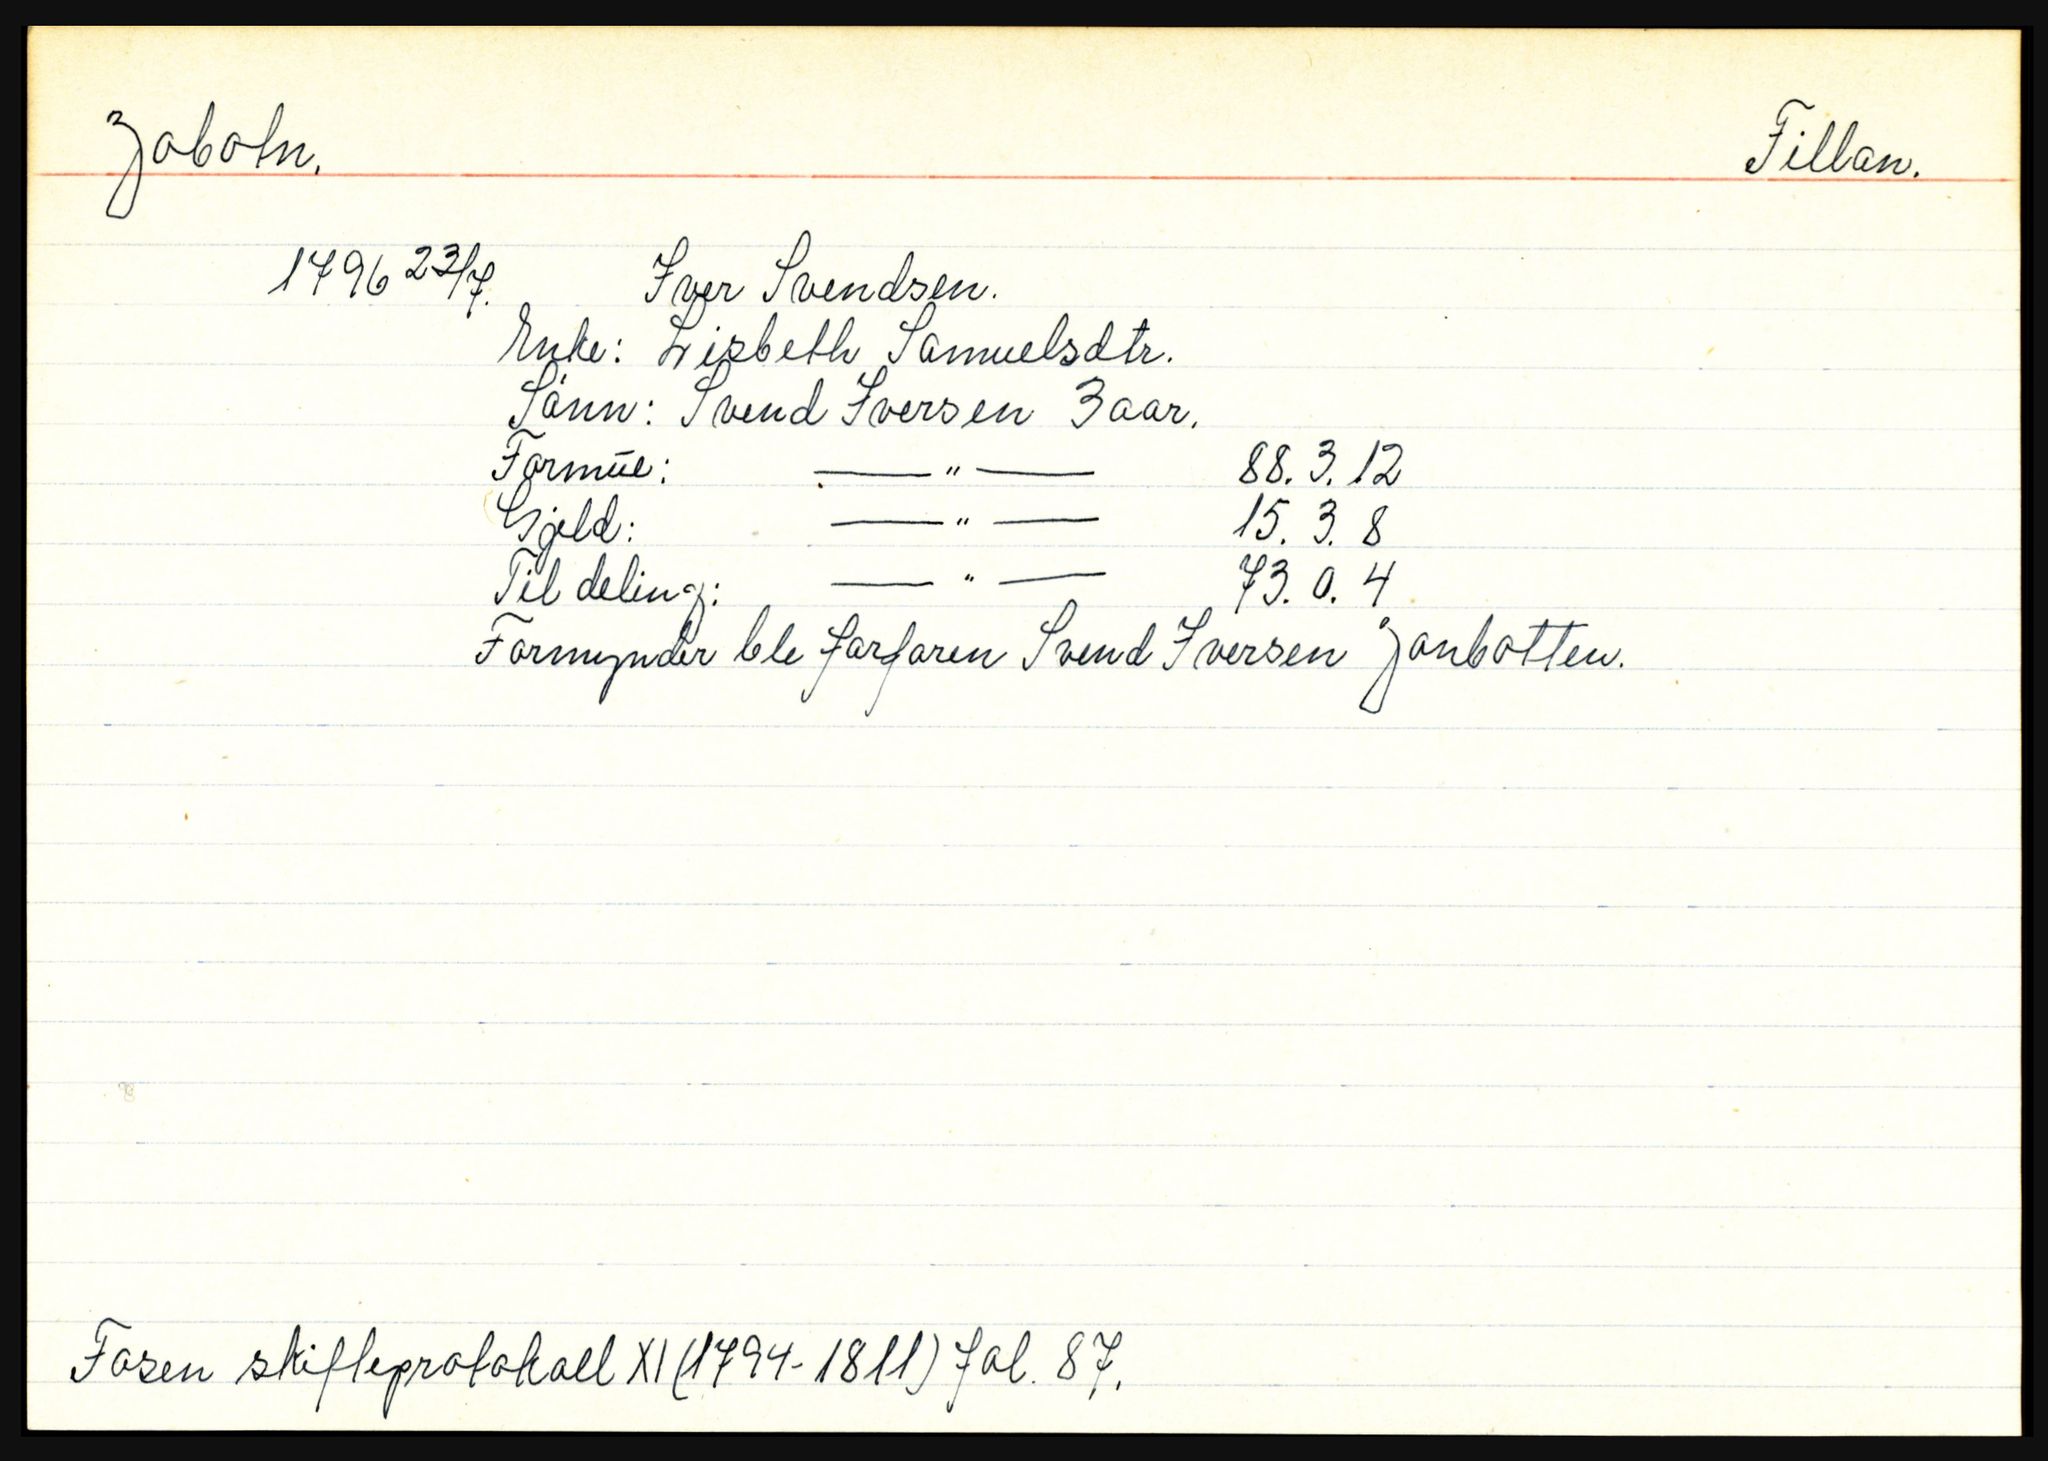 Jobotn. Fillan.
1796 23/7. Iver Svendsen.
Enke: Lisbeth Samuelsdtr.
Sönn: Svend Iversen 3 aar.
Formue: — " — 88. 3. 12
Gjeld: — " — 15. 3. 8
Til deling: — " — 73. 0. 4
Formynder ble farfaren Svend Iversen Jonbotten.
Fosen skifteprotokoll XI (1794-1811) fol. 87.